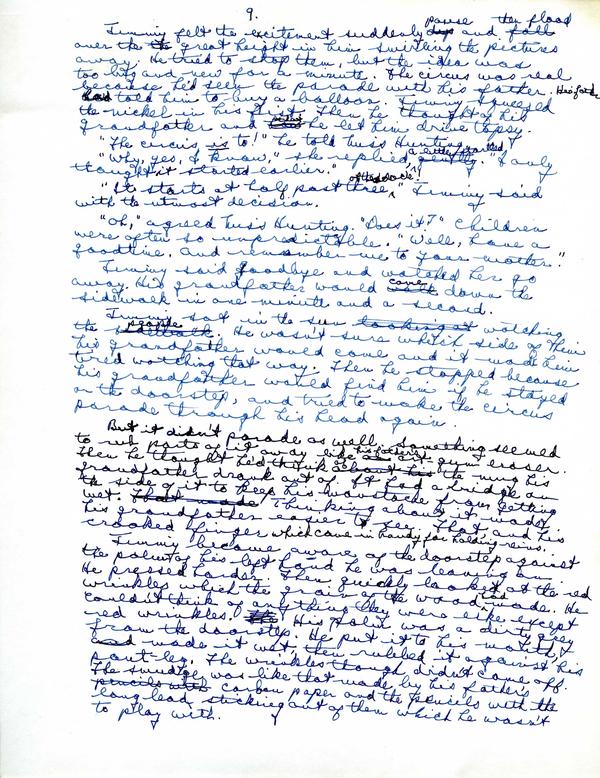 9.
pause then flood
Timmy felt the excitement suddenly dip and fall
over the the great height in him swirling the pictures
away. He tried to stop them, but the idea was
too big and new for a minute. The circus was real
because he'd seen the parade with his father. His father
had told him to buy a balloon. Timmy squeezed
the nickel in his fist. Then he thought of his
grandfather and he let him drive topsy.
"The circus is to!" he told Miss Hunting.
a little startled
"Why, yes, I know," she replied, gently. "I only
thought it started earlier."
o'clock
"It starts at half past three," Timmy said
with the utmost decision.
"Oh," agreed Miss Hunting. "Does it?" Children
were often so unpredictable. "Well, have a
good time. And remember me to your mother."
Timmy said goodbye and watched her go
came
away. His grandfather would down the
sidewalk in one minute and a second.
Timmy sat in the sun looking at watching
people
the sidewalk. He wasn't sure which side of them
his grandfather would come and it made him
tired watching that way. Then he stopped because
his grandfather would find him if he stayed
on the doorstep, and tried to make the circus
parade through his head again.
But it didn't parade as well. Something seemed
to rub parts of it away like his father's art gum eraser.
Then he thought he'd think about his the mug his
grandfather drank out of. It had a bridge on
the side of it to keep his moustache from getting
wet. That made Thinking about it made
his grandfather easier to see. That and his
crooked finger which came in handy for holding reins.
Timmy became aware of the doorstep against
the palm of his left hand he was leaning on.
He pressed harder. Then quickly looked at the red
wrinkles which the grain of the wood had made. He
couldn't think of anything they were like except
red wrinkles. His palm was a dirty grey
from the doorstep. He put it to his mouth,
and made it wet, then rubbed it against his
pant-leg. The wrinkles though didn't come off.
The smudge was like that made by his father's
pencils with carbon paper and the pencils with the
long lead sticking out of them which he wasn't
to play with.